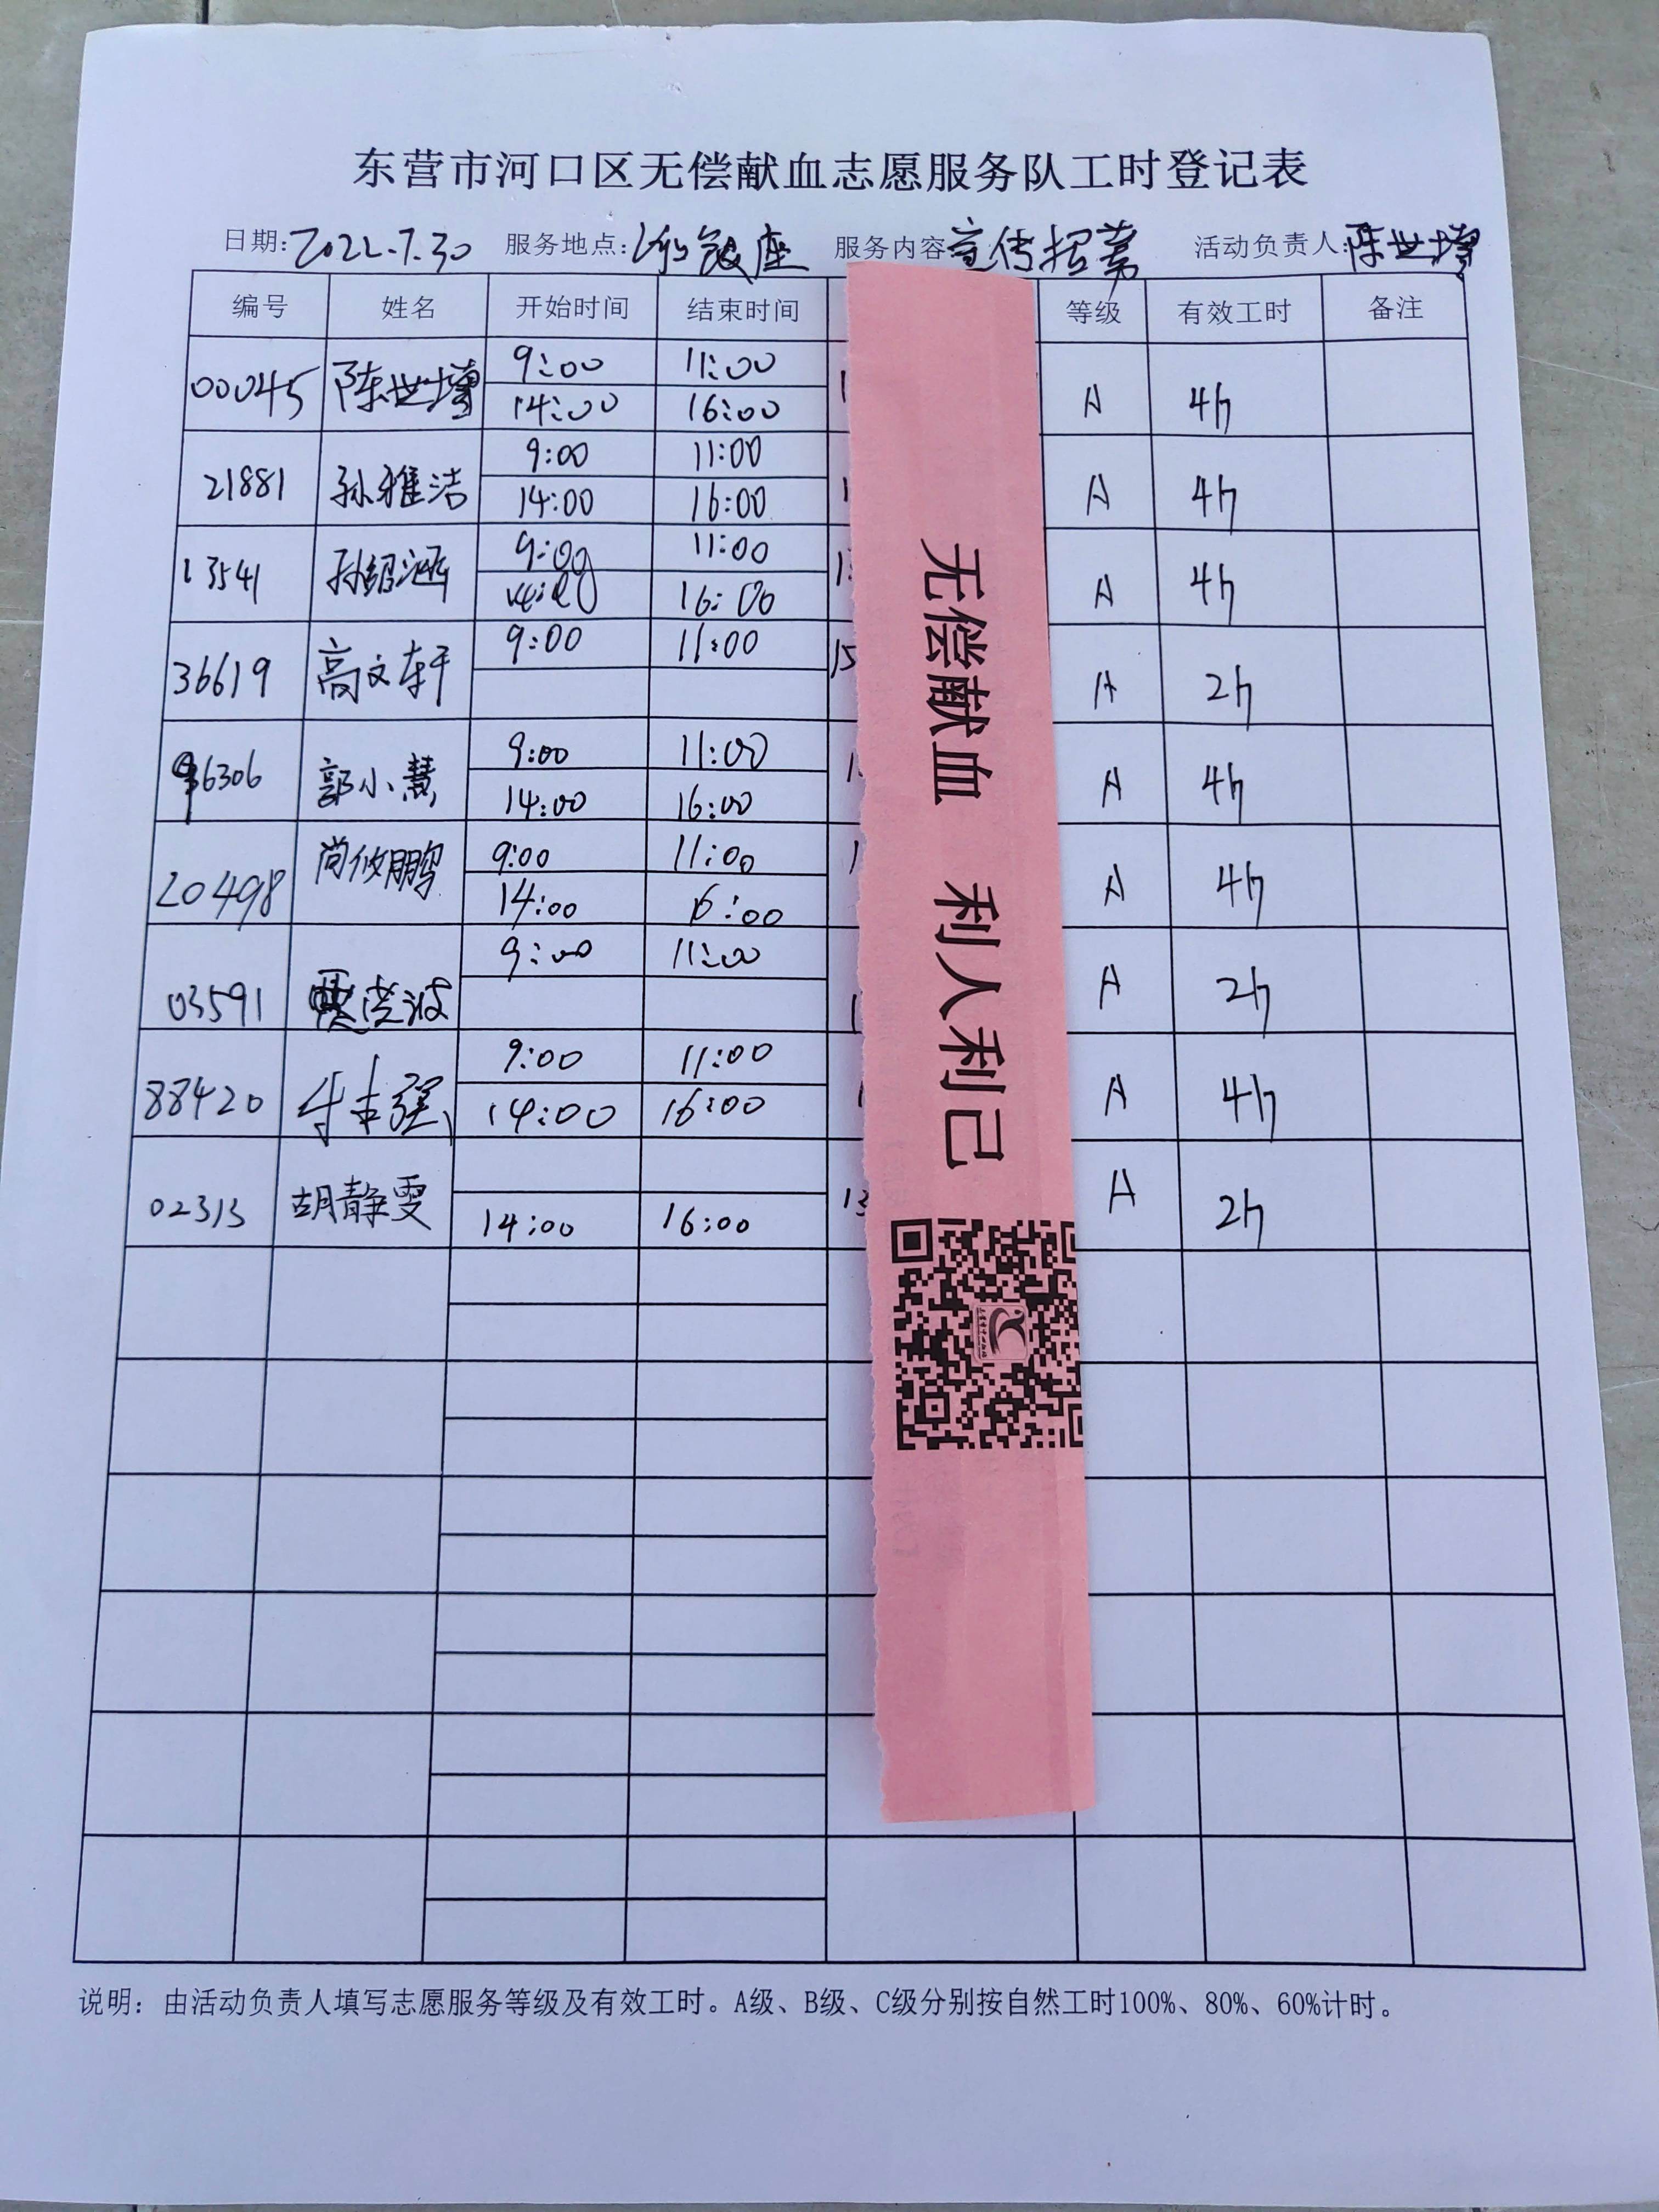 东营市河口区无偿献血志愿服务队工时登记表
日期:2022.7.30 服务地点: 银座 服务内容 宣传招募 活动负责人:陈世增
编号 姓名 开始时间 结束时间 等级 有效工时 备注
00045 陈世增 9:00 11:00 A 4h
14:00 16:00
21881 孙雅洁 9:00 11:00 A 4h
14:00 16:00
13541 孙绍涵 9:00 11:00 A 4h
14:00 16:00
36619 高文轩 9:00 11:00 15 A 2h
96306 郭小慧 9:00 11:00 A 4h
14:00 16:00
20498 尚攸鹏 9:00 11:00 A 4h
14:00 16:00
03591 9:00 11:00 A 2h
88420 9:00 11:00 A 4h
14:00 16:00
02313 胡静雯 13 A 2h
14:00 16:00
无偿献血 利人利己
说明：由活动负责人填写志愿服务等级及有效工时。A级、B级、C级分别按自然工时100%、80%、60%计时。